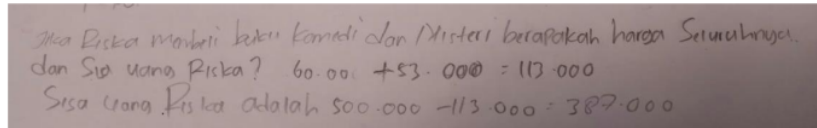 Jika Riska membeli buku Komedi dan Misteri berapakah harga Seluruhnya.
dan Sisa uang Riska? 60.000 + 53.000 = 113.000
Sisa uang Riska adalah 500.000 - 113.000 = 387.000